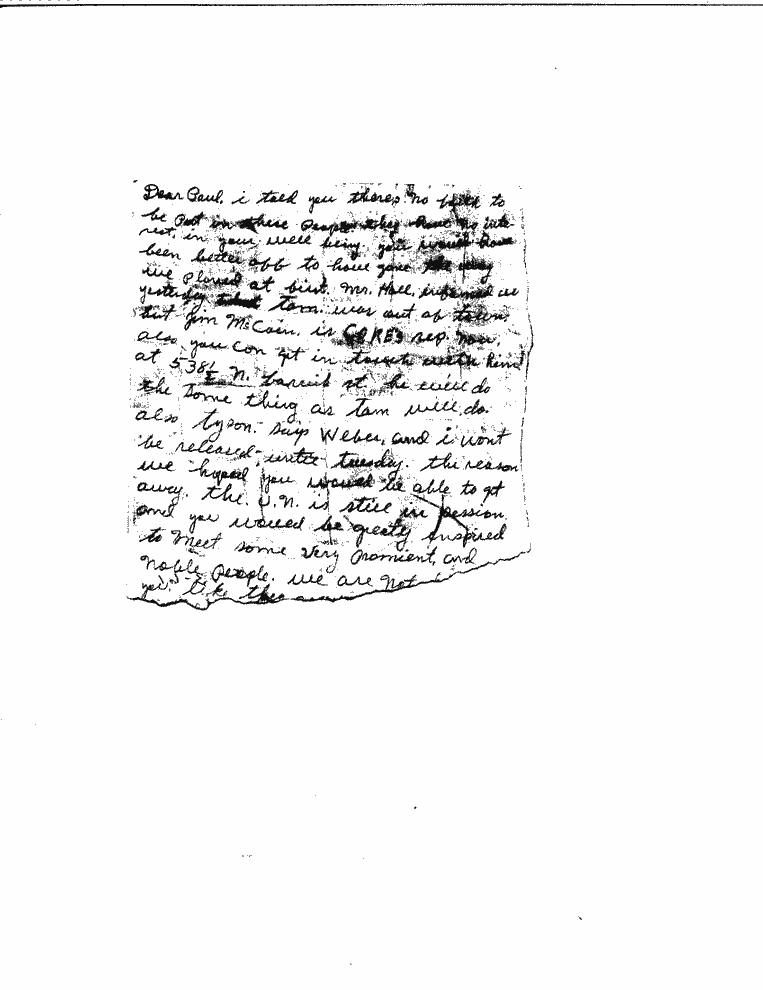 Dear Paul, i told you there's no faith to
be put in these people they have no inte-
rest, in your well being, you would have
been better off to have gone the way
we planed at first. Mr. Hall, informed us
yesterday that Tom. was out of town.
but Jim McCain, is CORES rep. now,
also you can get in touch with him
at 538½ N. st. he will do
the same thing as Tom will, do.
also, tyson. says Weber, and i wont
be released, until tuesday. the reason
we hoped you would be able to get
away. the. U.N. is still in session
and you would be greatly inspired
to meet some very promient, and
noble, people. we are not
yed. like the